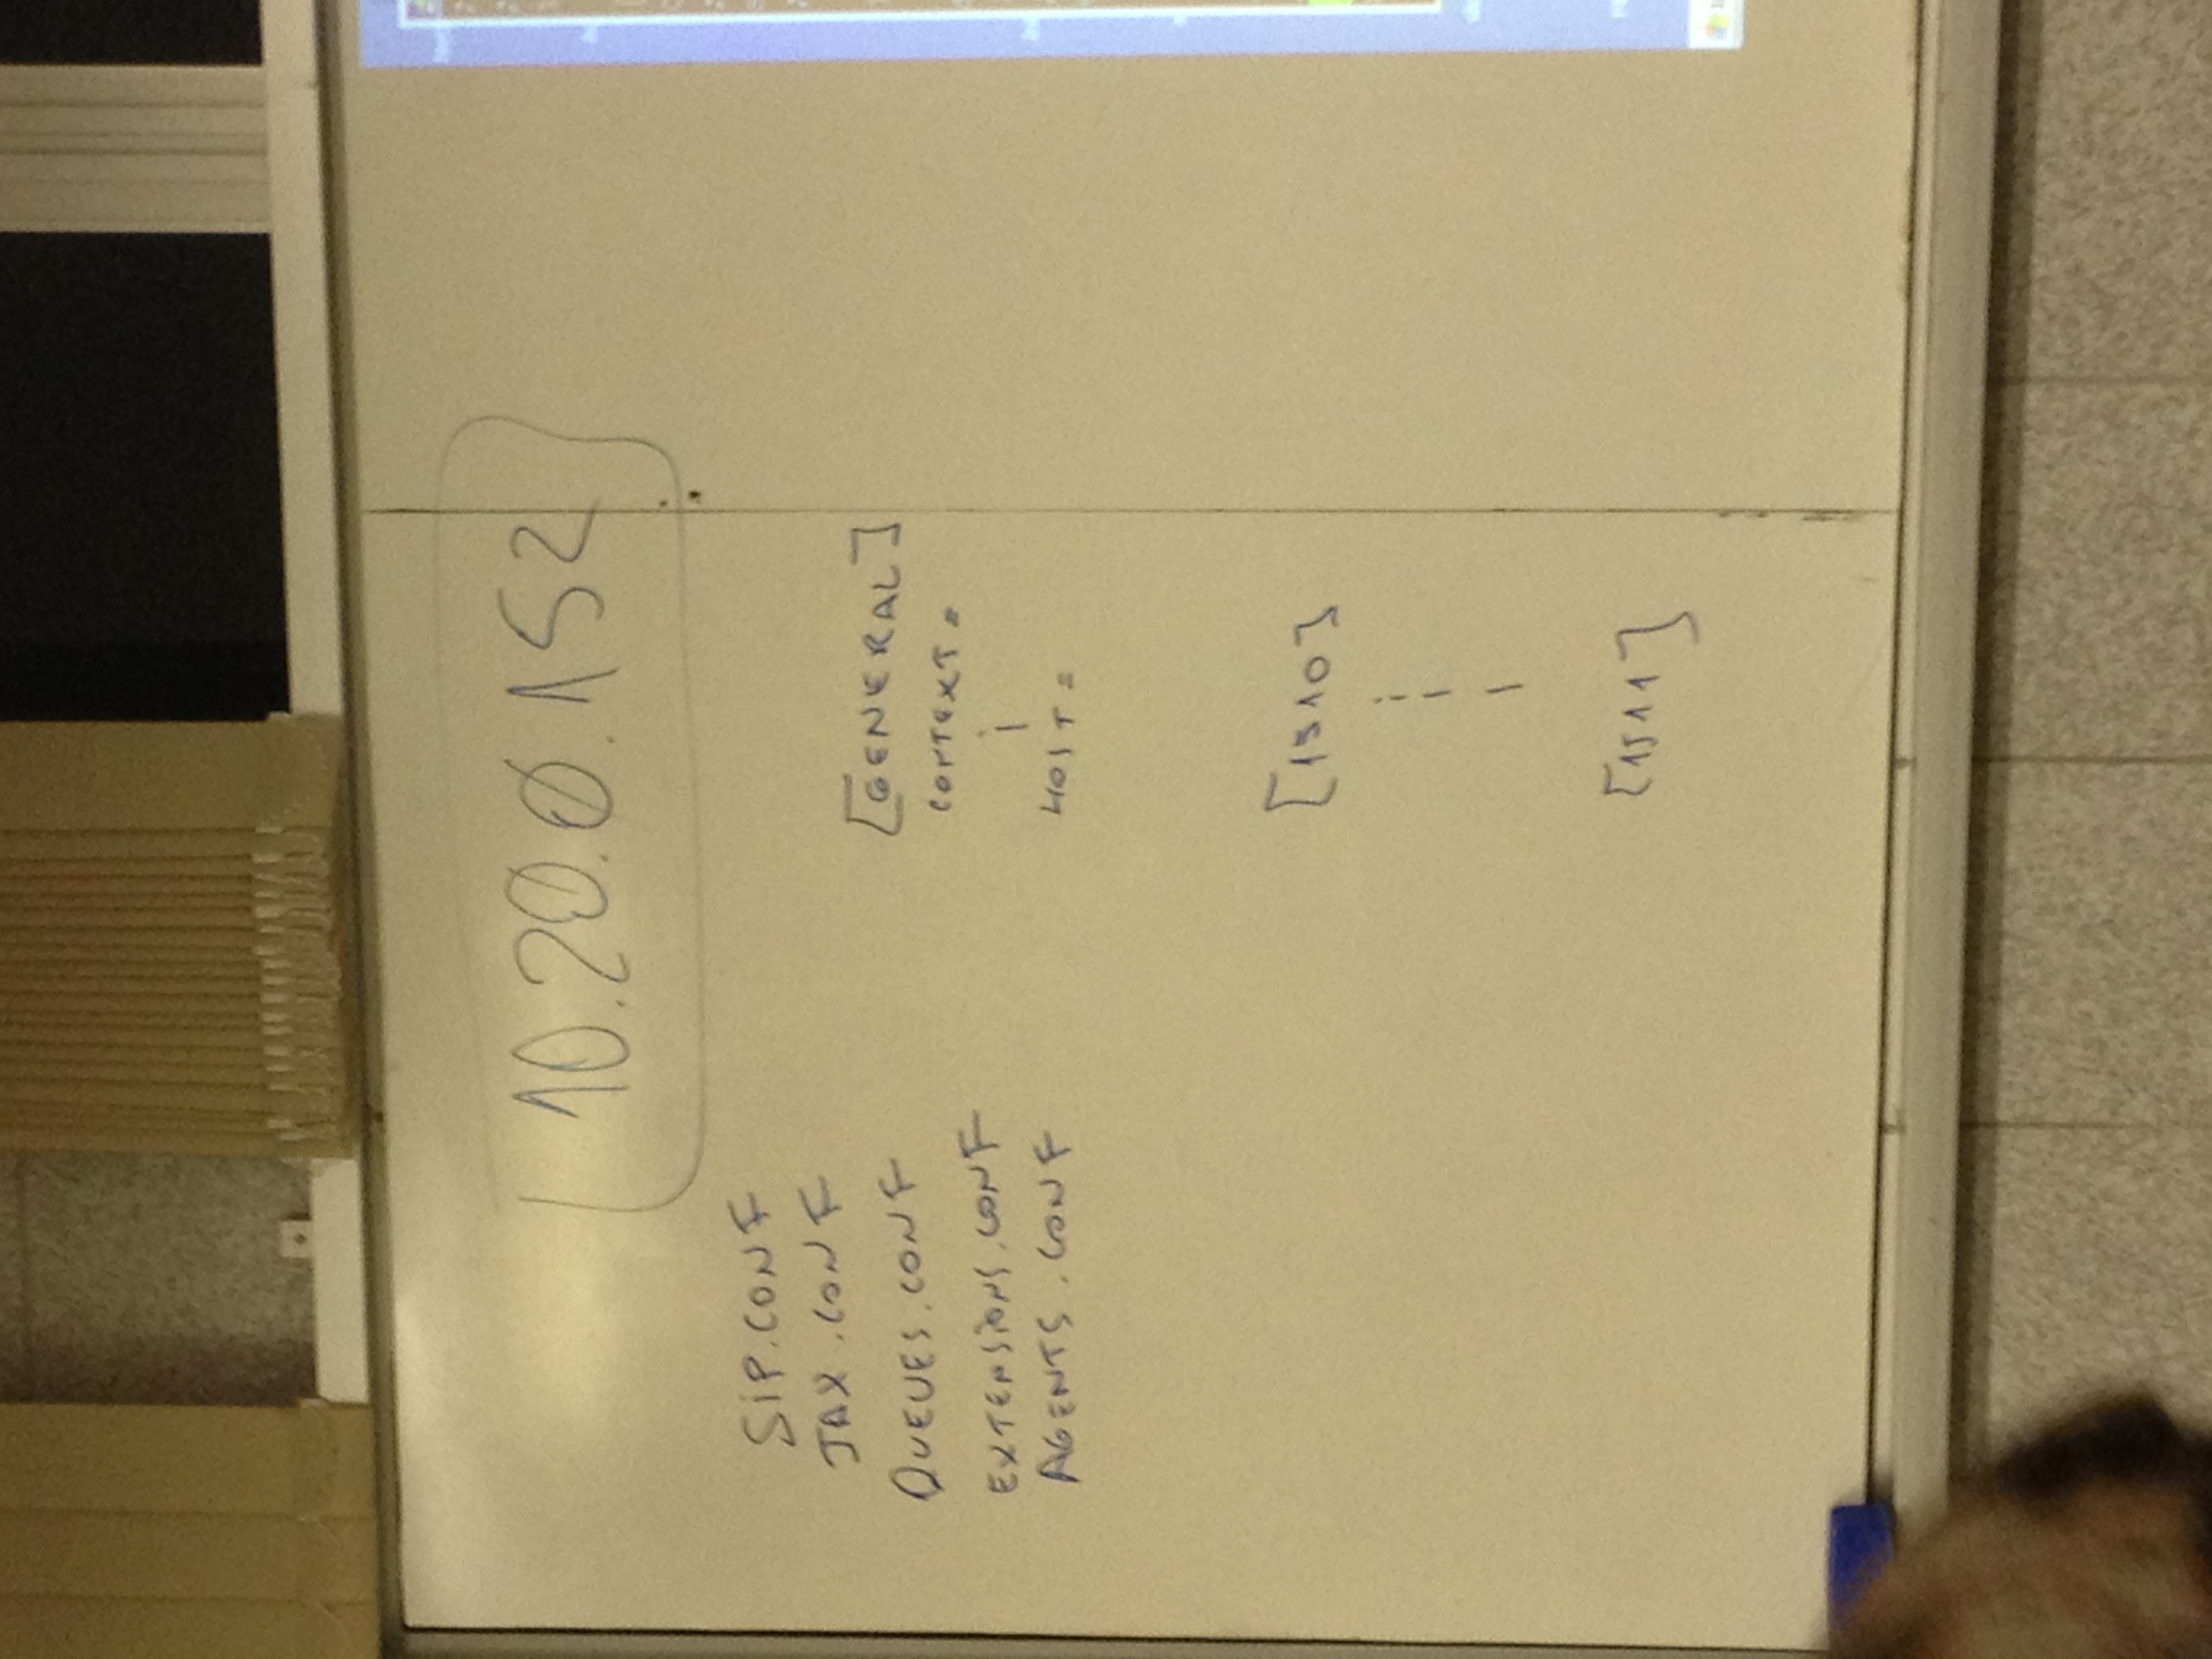 10.20.0.152
SiP.CONF
IAX.CONF
QUEUES.CONF
EXTENSiONS.CONF
AGENTS.CONF
[GENERAL]
CONTEXT=
HOST=
[1510]
[1511]